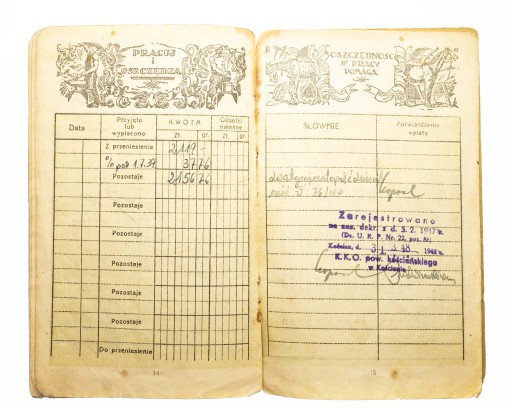 PRACUJ
i
OSZCZĘDZAJ
Data
Przyjęto
lub
wypłacono
KWOTA
Zł.
gr.
Odsetki
należne
Zł.
gr.
Z przeniesienia
2119 -
% po 1.7.39
37 76
Pozostaje
2156 76
Pozostaje
Pozostaje
Pozostaje
Pozostaje
Pozostaje
Do przeniesienia
14
OSZCZĘDNOŚĆ
W PRACY
POMAGA
SŁOWNIE
Potwierdzenie
wpłaty
sześć zł 76/100
Zarejestrowano
na zas. dekr. z d. 3. 2. 1947 r.
(Dz. U. R. P. Nr. 22, poz. 88)
Kościan, d. 1948 r.
K.K.O. pow. kościańskiego
w Kościanie
15